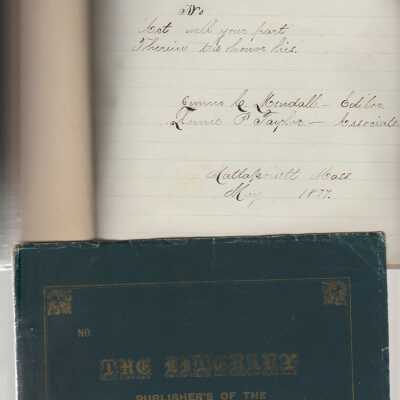 No
Act well your part
Therein the honor lies.
C. Mendall — Editor
P. Taylor — Associate
Mattapoisett Mass
May 1877.
NO.
THE LITERARY
PUBLISHER'S OF THE